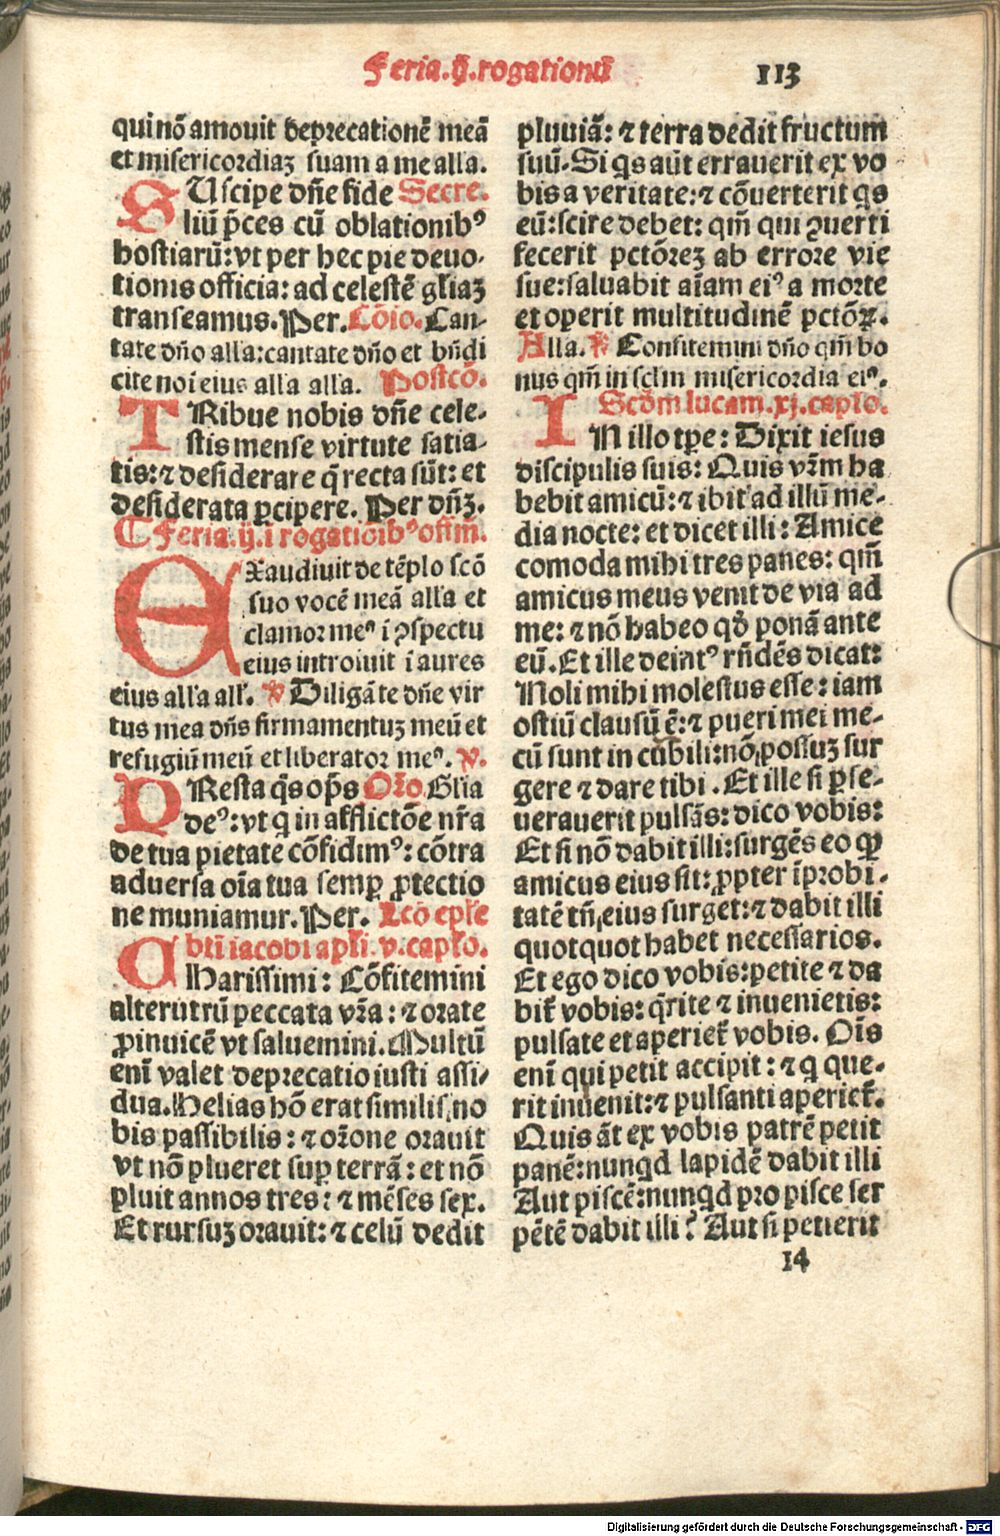 Feria.ij.rogationū 113
qui nō amouit deprecationē meā
et misericordiaʒ suam a me alla.
SUscipe dn̄e fide Secre.
liū p̄ces cū oblationibꝰ
hostiarū: vt per hec pie deuo-
tionis officia: ad celestē gl̄iaʒ
transeamus. Per. Cōio. Can-
tate dn̄o alla: cantate dn̄o et bn̄di
cite noi eius alla alla. Postcō.
TRibue nobis dn̄e cele-
stis mense virtute satia-
tis: ⁊ desiderare q̄ recta sūt: et
desiderata ꝑcipere. Per dn̄ʒ.
¶ Feria.ij.ī rogatiōibꝰ offm̄.
EXaudiuit de tēplo scō
suo vocē meā alla et
clamor meꝰ ī ꝯspectu
eius introiuit ī aures
eius alla all. ℣ Diligāte dn̄e vir
tus mea dn̄s firmamentuʒ meū et
refugiū meū et liberator meꝰ. ℣.
PResta q̄s op̄s Or̄o. Gl̄ia
deꝰ: vt q in afflictōe nr̄a
de tua pietate cōfidimꝰ: cōtra
aduersa oīa tua semꝑ ꝓtectio
ne muniamur. Per. Lcō epl̄e
bt̄i iacobi apl̄i. v. capl̄o.
CHarissimi: Cōfitemini
alterutrū peccata vr̄a: ⁊ orate
ꝓinuicē vt saluemini. Multū
enī valet deprecatio iusti assi-
dua. Helias hō erat similis no
bis passibilis: ⁊ or̄one orauit
vt nō plueret suꝑ terrā: et nō
pluit annos tres: ⁊ mēses sex.
Et rursuʒ orauit: ⁊ celū dedit
pluuiā: ⁊ terra dedit fructum
suū. Si qs aūt errauerit ex vo
bis a veritate: ⁊ cōuerterit qs
eū: scire debet: qm̄ qui ꝯuerti
fecerit pctōreʒ ab errore vie
sue: saluabit aīam eiꝰ a morte
et operit multitudinē pctōꝝ.
Alla. ℣ Confitemini dn̄o qm̄ bo
nus qm̄ in sclm misericordia eiꝰ.
Scd̄m lucam. xj. capl̄o.
IN illo tp̄e: Dixit iesus
discipulis suis: Quis vr̄m ha
bebit amicū: ⁊ ibit ad illū me-
dia nocte: et dicet illi: Amice
comoda mihi tres panes: qm̄
amicus meus venit de via ad
me: ⁊ nō habeo qd̄ ponā ante
eū. Et ille deintꝰ rn̄dēs dicat:
Noli mihi molestus esse: iam
ostiū clausū ē: ⁊ pueri mei me-
cū sunt in cubili: nō possuʒ sur
gere ⁊ dare tibi. Et ille si ꝑse-
uerauerit pulsās: dico vobis:
Et si nō dabit illi: surgēs eo ꝙ
amicus eius sit: ꝓpter īprobi-
tatē tn̄ eius surget: ⁊ dabit illi
quotquot habet necessarios.
Et ego dico vobis: petite ⁊ da
bit̄ vobis: q̄rite ⁊ inuenietis:
pulsate et aperiet̄ vobis. Oīs
enī qui petit accipit: ⁊ q que-
rit inuenit: ⁊ pulsanti aperiet̄.
Quis āt ex vobis patrē petit
panē: nunqd lapidē dabit illi
Aut piscē: nunqd pro pisce ser
pētē dabit illi? Aut si petierit
14
Digitalisierung gefördert durch die Deutsche Forschungsgemeinschaft - DFG